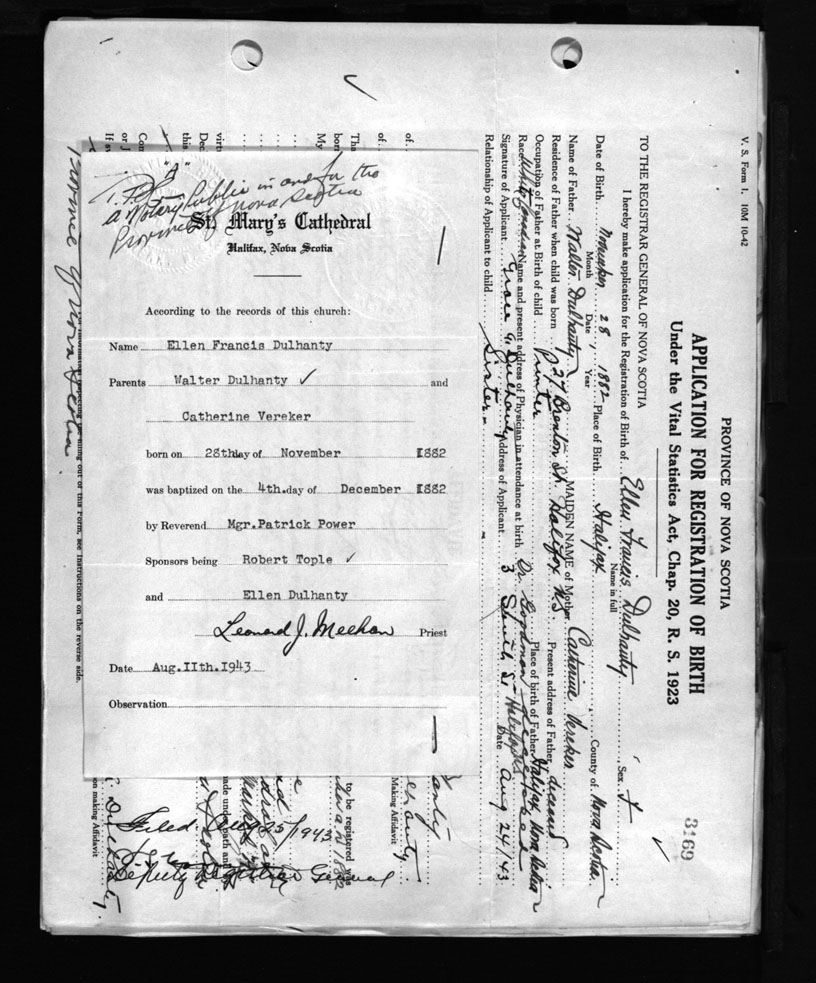 V. S. Form 1. 10M 10-42
PROVINCE OF NOVA SCOTIA
APPLICATION FOR REGISTRATION OF BIRTH
Under the Vital Statistics Act, Chap. 20, R. S. 1923
3169
TO THE REGISTRAR GENERAL OF NOVA SCOTIA
I hereby make application for the Registration of Birth of Ellen Francis Dulhanty Sex F
Name in full
Date of Birth November 28, 1882 Place of Birth Halifax County of Nova Scotia
Month Date Year
Name of Father Walter Dulhanty MAIDEN NAME of Mother Catherine Vereker
Residence of Father when child was born 27 Brenton St. Halifax N.S. Present address of Father deceased
Occupation of Father at Birth of child Printer Place of birth of Father Halifax, Nova Scotia
Race White Name and present address of Physician in attendance at birth Dr. Goodman
Signature of Applicant Grace A. Dulhanty Address of Applicant 3 Halifax Date Aug 24/43
Relationship of Applicant to child Sister
"A"
a Notary Public in and for the
Province of Nova Scotia
St. Mary's Cathedral
Halifax, Nova Scotia
According to the records of this church:
Name Ellen Francis Dulhanty
Parents Walter Dulhanty ✓ and
Catherine Vereker
born on 28th day of November 1882
was baptized on the 4th.day of December 1882
by Reverend Mgr.Patrick Power
Sponsors being Robert Tople ✓
and Ellen Dulhanty
Leonard J. Meehan Priest
Date Aug.IIth.1943
Observation
of
of
born
My
this
or J
Province of Nova Scotia
out of this Form, see Instructions on the reverse side.
Making Affidavit
to be registered was
made under oath and
on making Affidavit
Dulhanty
Filed 1943
Deputy Registrar General